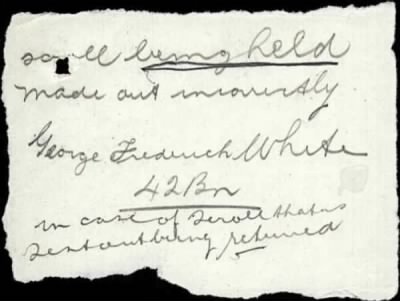 scroll being held
made out incorrectly
George Frederick White
42Bn
in case of Scroll that is
sent out being returned